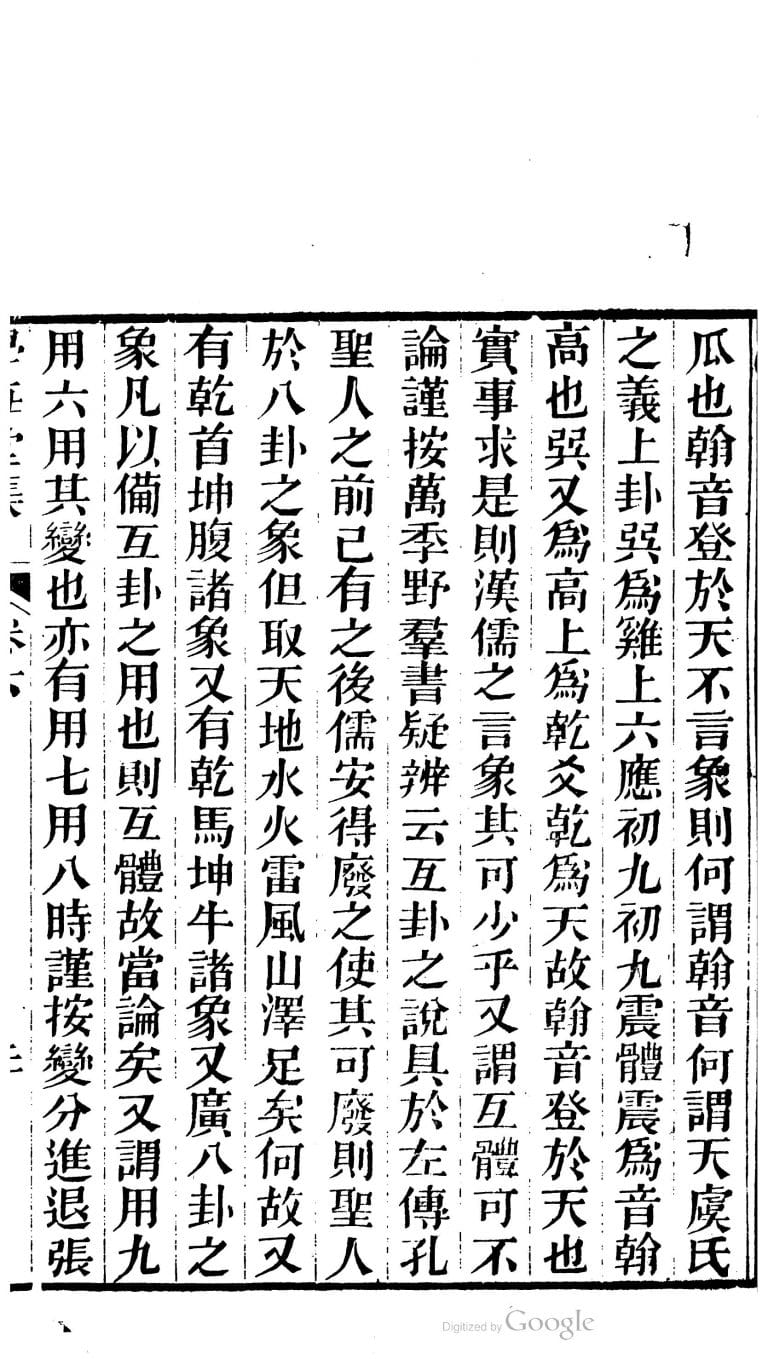 瓜也翰音登於天不言象則何謂翰音何謂天虞氏
之義上卦巽爲雞上六應初九初九震體震爲音翰
高也巽又爲高上爲乾爻乾爲天故翰音登於天也
實事求是則漢儒之言象其可少乎又謂互體可不
論謹按萬季野羣書疑辨云互卦之說具於左傳孔
聖人之前已有之後儒安得廢之使其可廢則聖人
於八卦之象但取天地水火雷風山澤足矣何故又
有乾首坤腹諸象又有乾馬坤牛諸象又廣八卦之
象凡以備互卦之用也則互體故當論矣又謂用九
用六用其變也亦有用七用八時謹按變分進退張
Digitized by Google